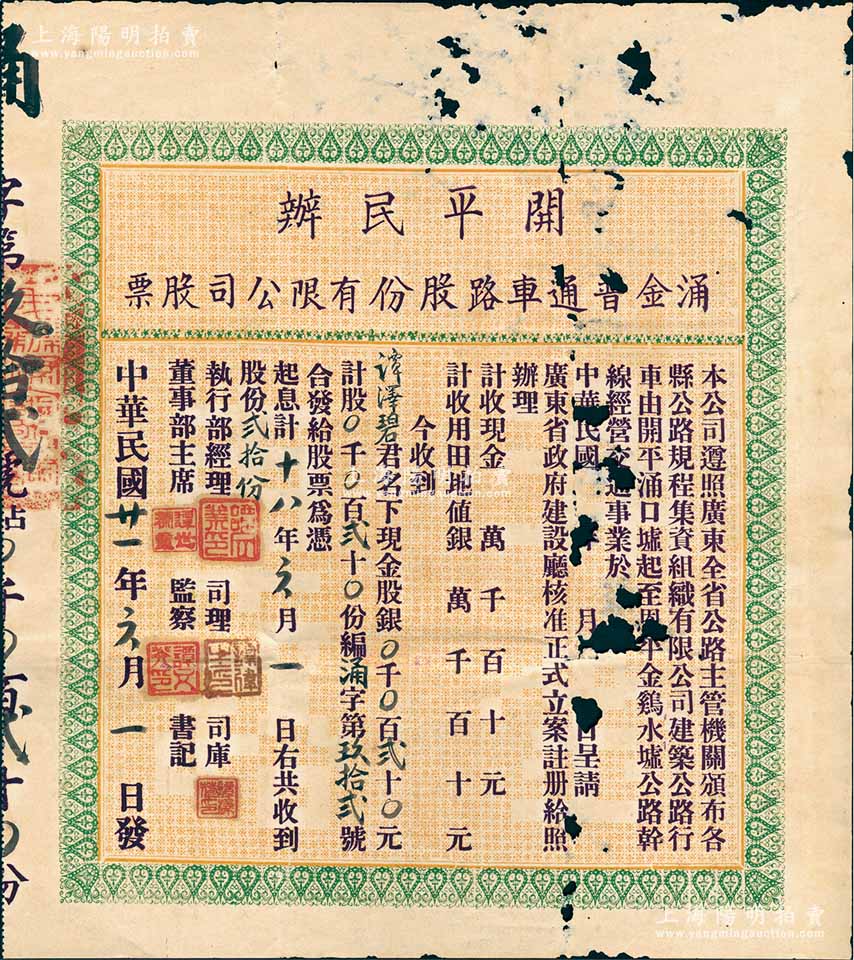 上海陽明拍賣
www.yangmingauction.com
開平民辦
涌金普通車路股份有限公司股票
本公司遵照廣東全省公路主管機關頒布各
縣公路規程集資組織有限公司建築公路行
車由開平涌口墟起至恩平金鷄水墟公路幹
線經營交通事業於
中華民國 年 月 日呈請
廣東省政府建設廳核准正式立案註册給照
辦理
計收現金 萬 千 百 十 元
計收用田地值銀 萬 千 百 十 元
今收到
譚澤碧君名下現金股銀0千0百弍十0元
計股0千0百弍十0份編涌字第玖拾弍號
合發給股票爲憑
起息計十八年元月一日右共收到
股份弍拾份
執行部經理 司理 司庫
董事部主席 監察 書記
中華民國廿一年元月一日發
涌字第玖拾弍號占0千0百弍十0份
上海陽明拍賣
www.yangmingauction.com
上海陽明拍賣
www.yangmingauction.com